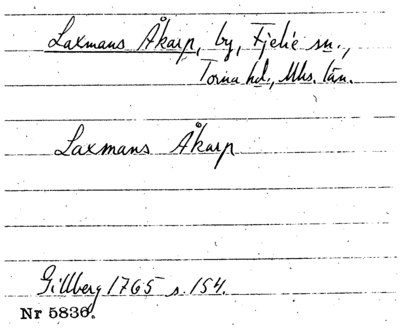 Laxmans Åkarp, by, Fjelie sn.,
Torna hd., Mhs. län.
Laxmans Åkarp
Gillberg 1765 s. 154.
Nr 5836.